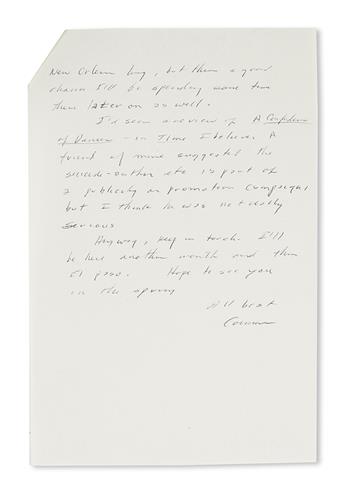 New Orleans long, but there a good
chance I'll be spending more time
there later on as well.
I'd seen a review of A Confederacy
of Dunces - in Time I believe. A
friend of mine suggested the
suicide-author etc is part of
a publicity or promotion campaign,
but I think he was not really
serious
Anyway, keep in touch. I'll
be here another month and then
El Paso. Hope to see you
in the spring
All best
Cormac